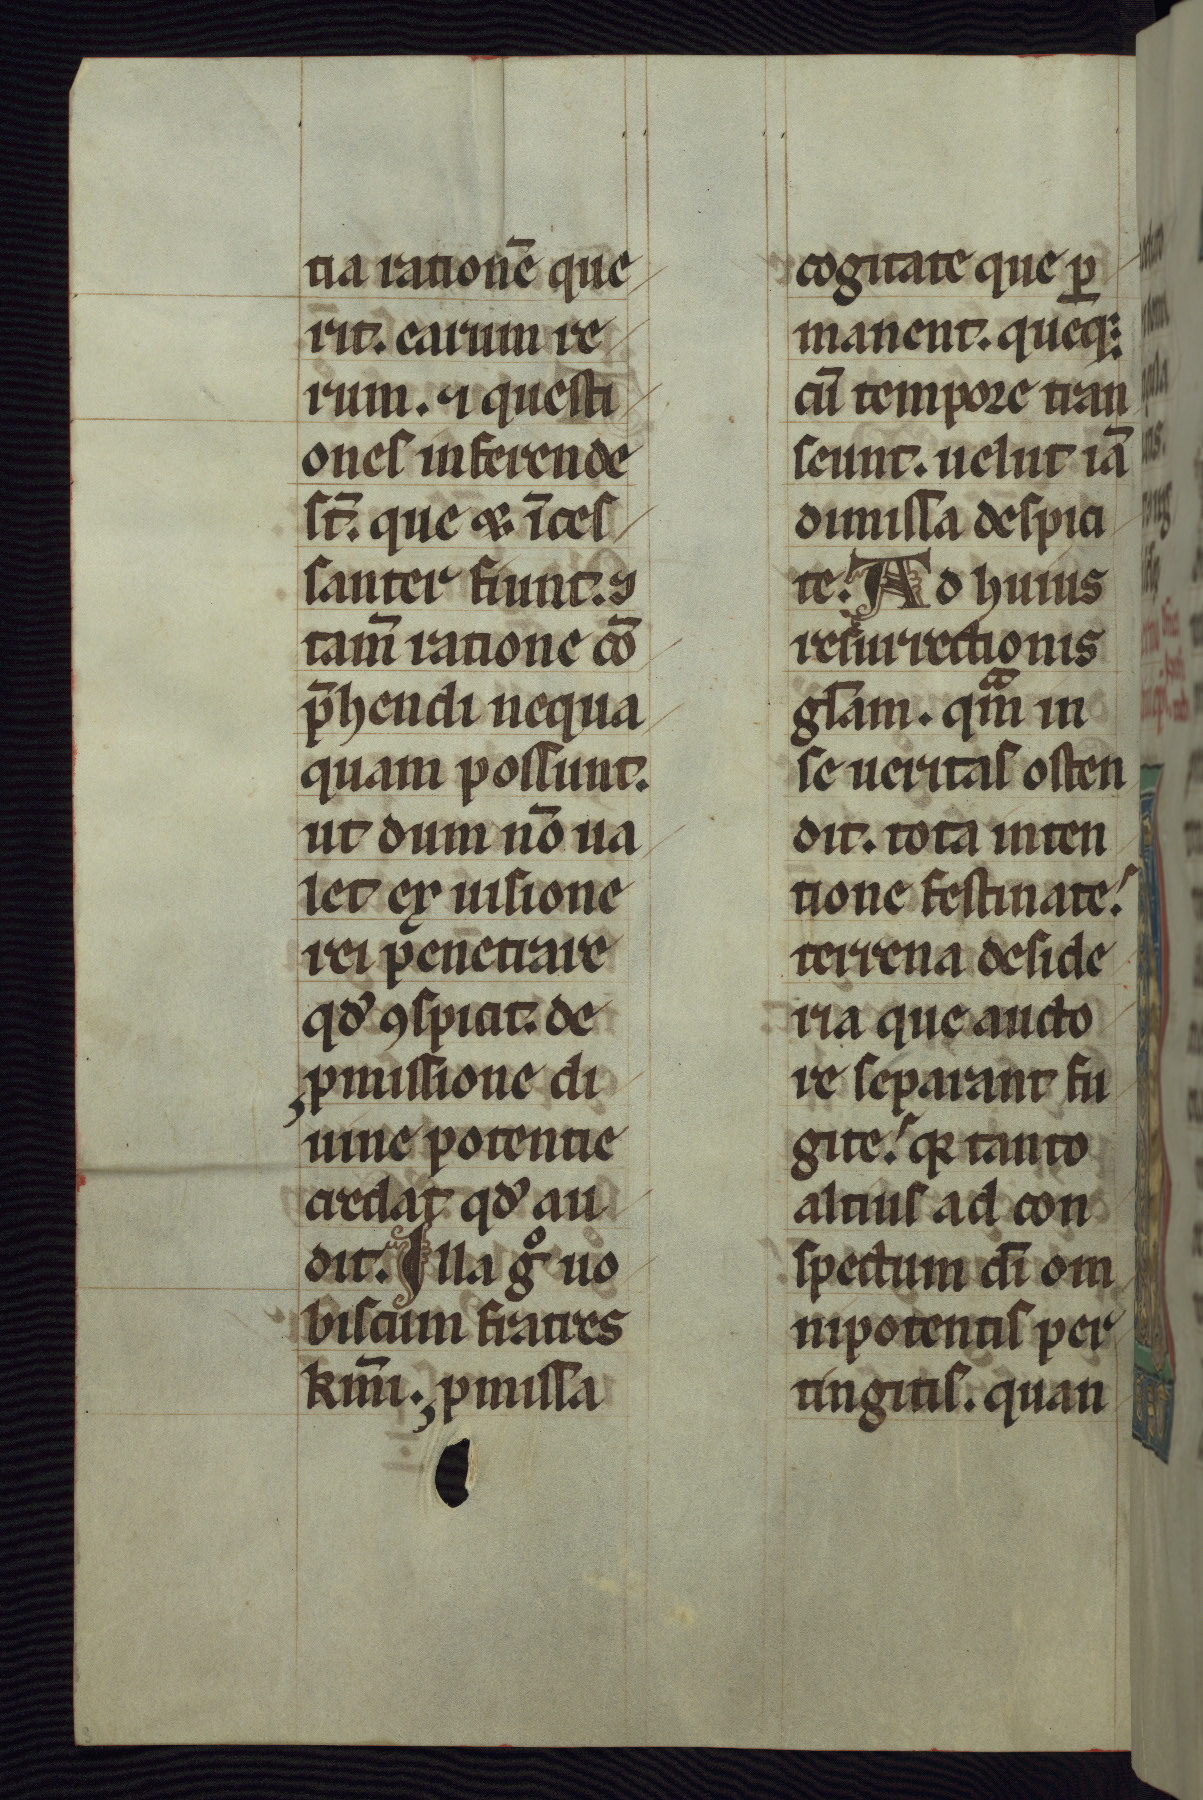 tia rationē que
rit. earum re
rum. ⁊ questi
ones inferende
st̄. que ⁊ īces
santer fiunt. ⁊
tam̄ ratione cō
p̄hendi nequa
quam possunt.
ut dum nō ua
let ex uisione
rei penetrare
qd' ꝯspicit. de
ꝓmissione di
uine potentie
credat qd' au
dit. Illa gͦ uo
biscum fratres
km̄i. ꝓmissa
cogitate que ꝑ
manent. queq;
cū tempore tran
seunt. uelut iā
dimissa despici
te. Ad huius
resurrectionis
gl̄am. qᵃm in
se ueritas osten
dit. tota inten
tione festinate.
terrena deside
ria que aucto
re separant fu
gite. qꝛ tanto
altius ad con
spectum dī om
nipotentis per
tingitis. quan